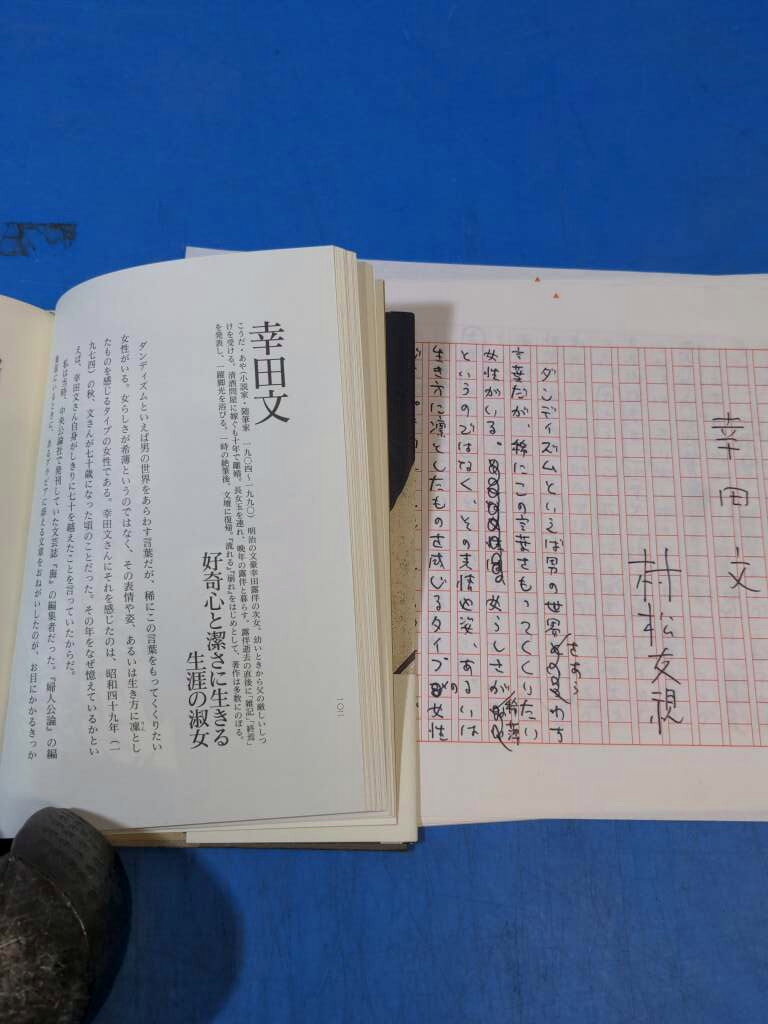 幸田文
こうだ・あや(小説家・随筆家 一九〇四〜一九九〇)明治の文豪幸田露伴の次女。幼いときから父の厳しいしつ
けを受ける。清酒問屋に嫁ぐも十年で離婚。長女玉を連れ、晩年の露伴と暮らす。露伴逝去の直後に「雑記」「終焉」
を発表し、一躍脚光を浴びる。一時の絶筆後、文壇に復帰。『流れる』『崩れ』をはじめとして、著作は多数にのぼる。
好奇心と潔さに生きる
生涯の淑女
ダンディズムといえば男の世界をあらわす言葉だが、稀にこの言葉をもってくくりたい
女性がいる。女らしさが希薄というのではなく、その表情や姿、あるいは生き方に凜とし
たものを感じるタイプの女性である。幸田文さんにそれを感じたのは、昭和四十九年(一
九七四)の秋、文さんが七十歳になった頃のことだった。その年をなぜ憶えているかとい
えば、幸田文さん自身がしきりに七十を越えたことを言っていたからだ。
私は当時、中央公論社で発刊していた文芸誌『海』の編集者だった。『婦人公論』の編
グラビアに添える文章をおねがいしたのが、お目にかかるきっか
一〇一
幸田文
村松友視
ダンディズムといえば男の世界をあらわす
言葉だが、稀にこの言葉をもってくくりたい
女性がいる。女らしさが希薄
というのではなく、その表情や姿、あるいは
生き方に凜としたものを感じるタイプの女性